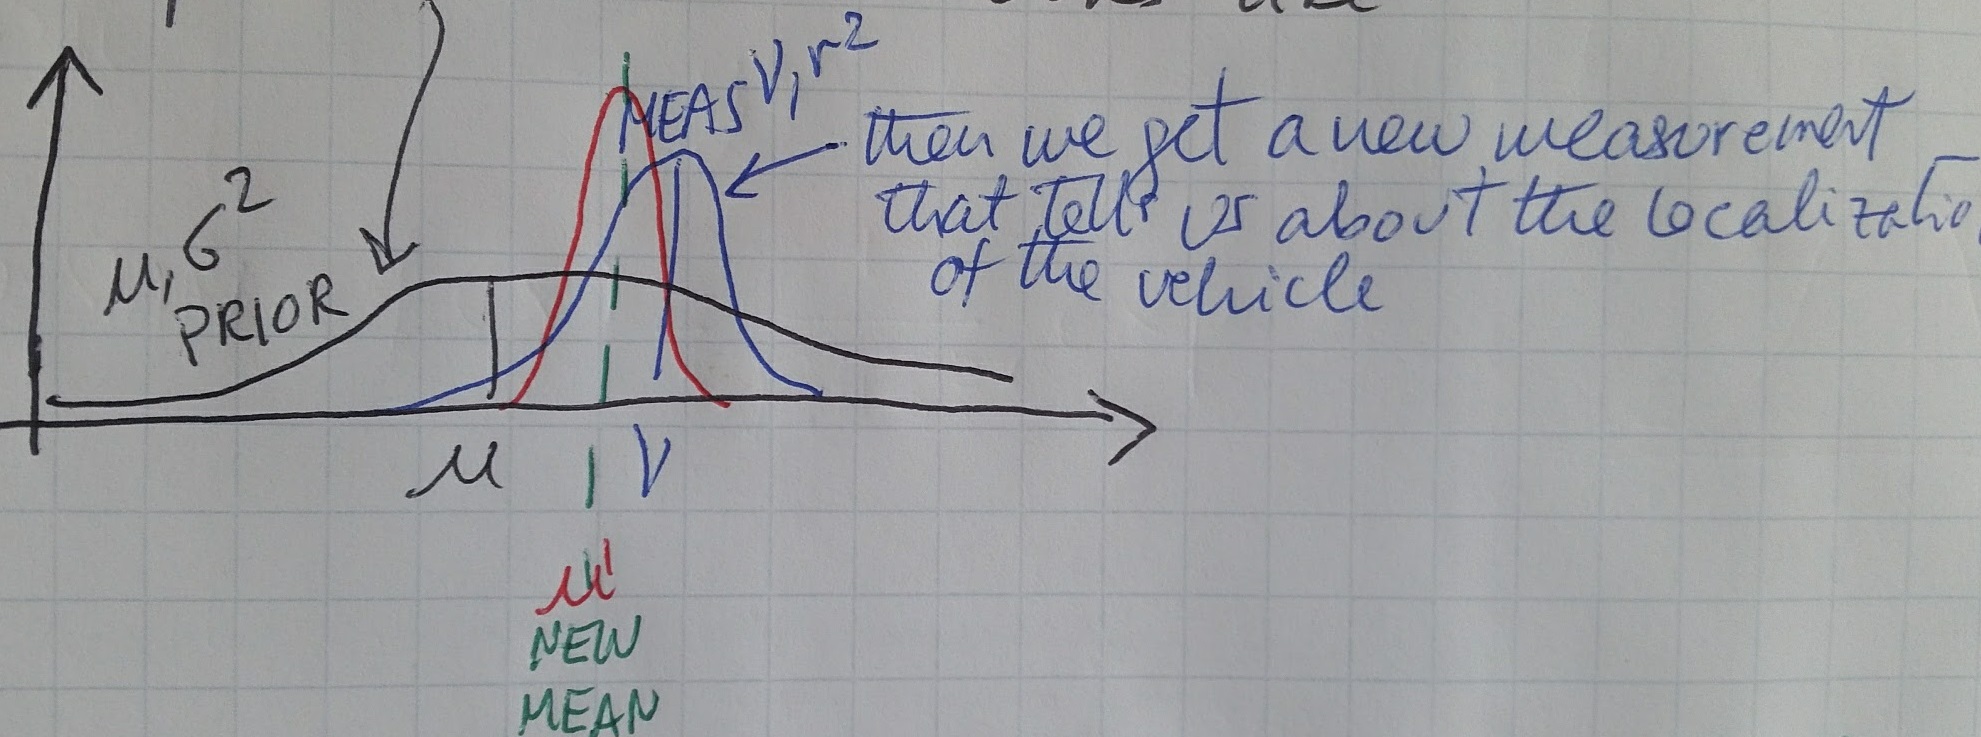 MEAS ν, r²
then we get a new measurement
that tells us about the localizatio
of the vehicle
μ, σ²
PRIOR
μ ν
μ'
NEW
MEAN